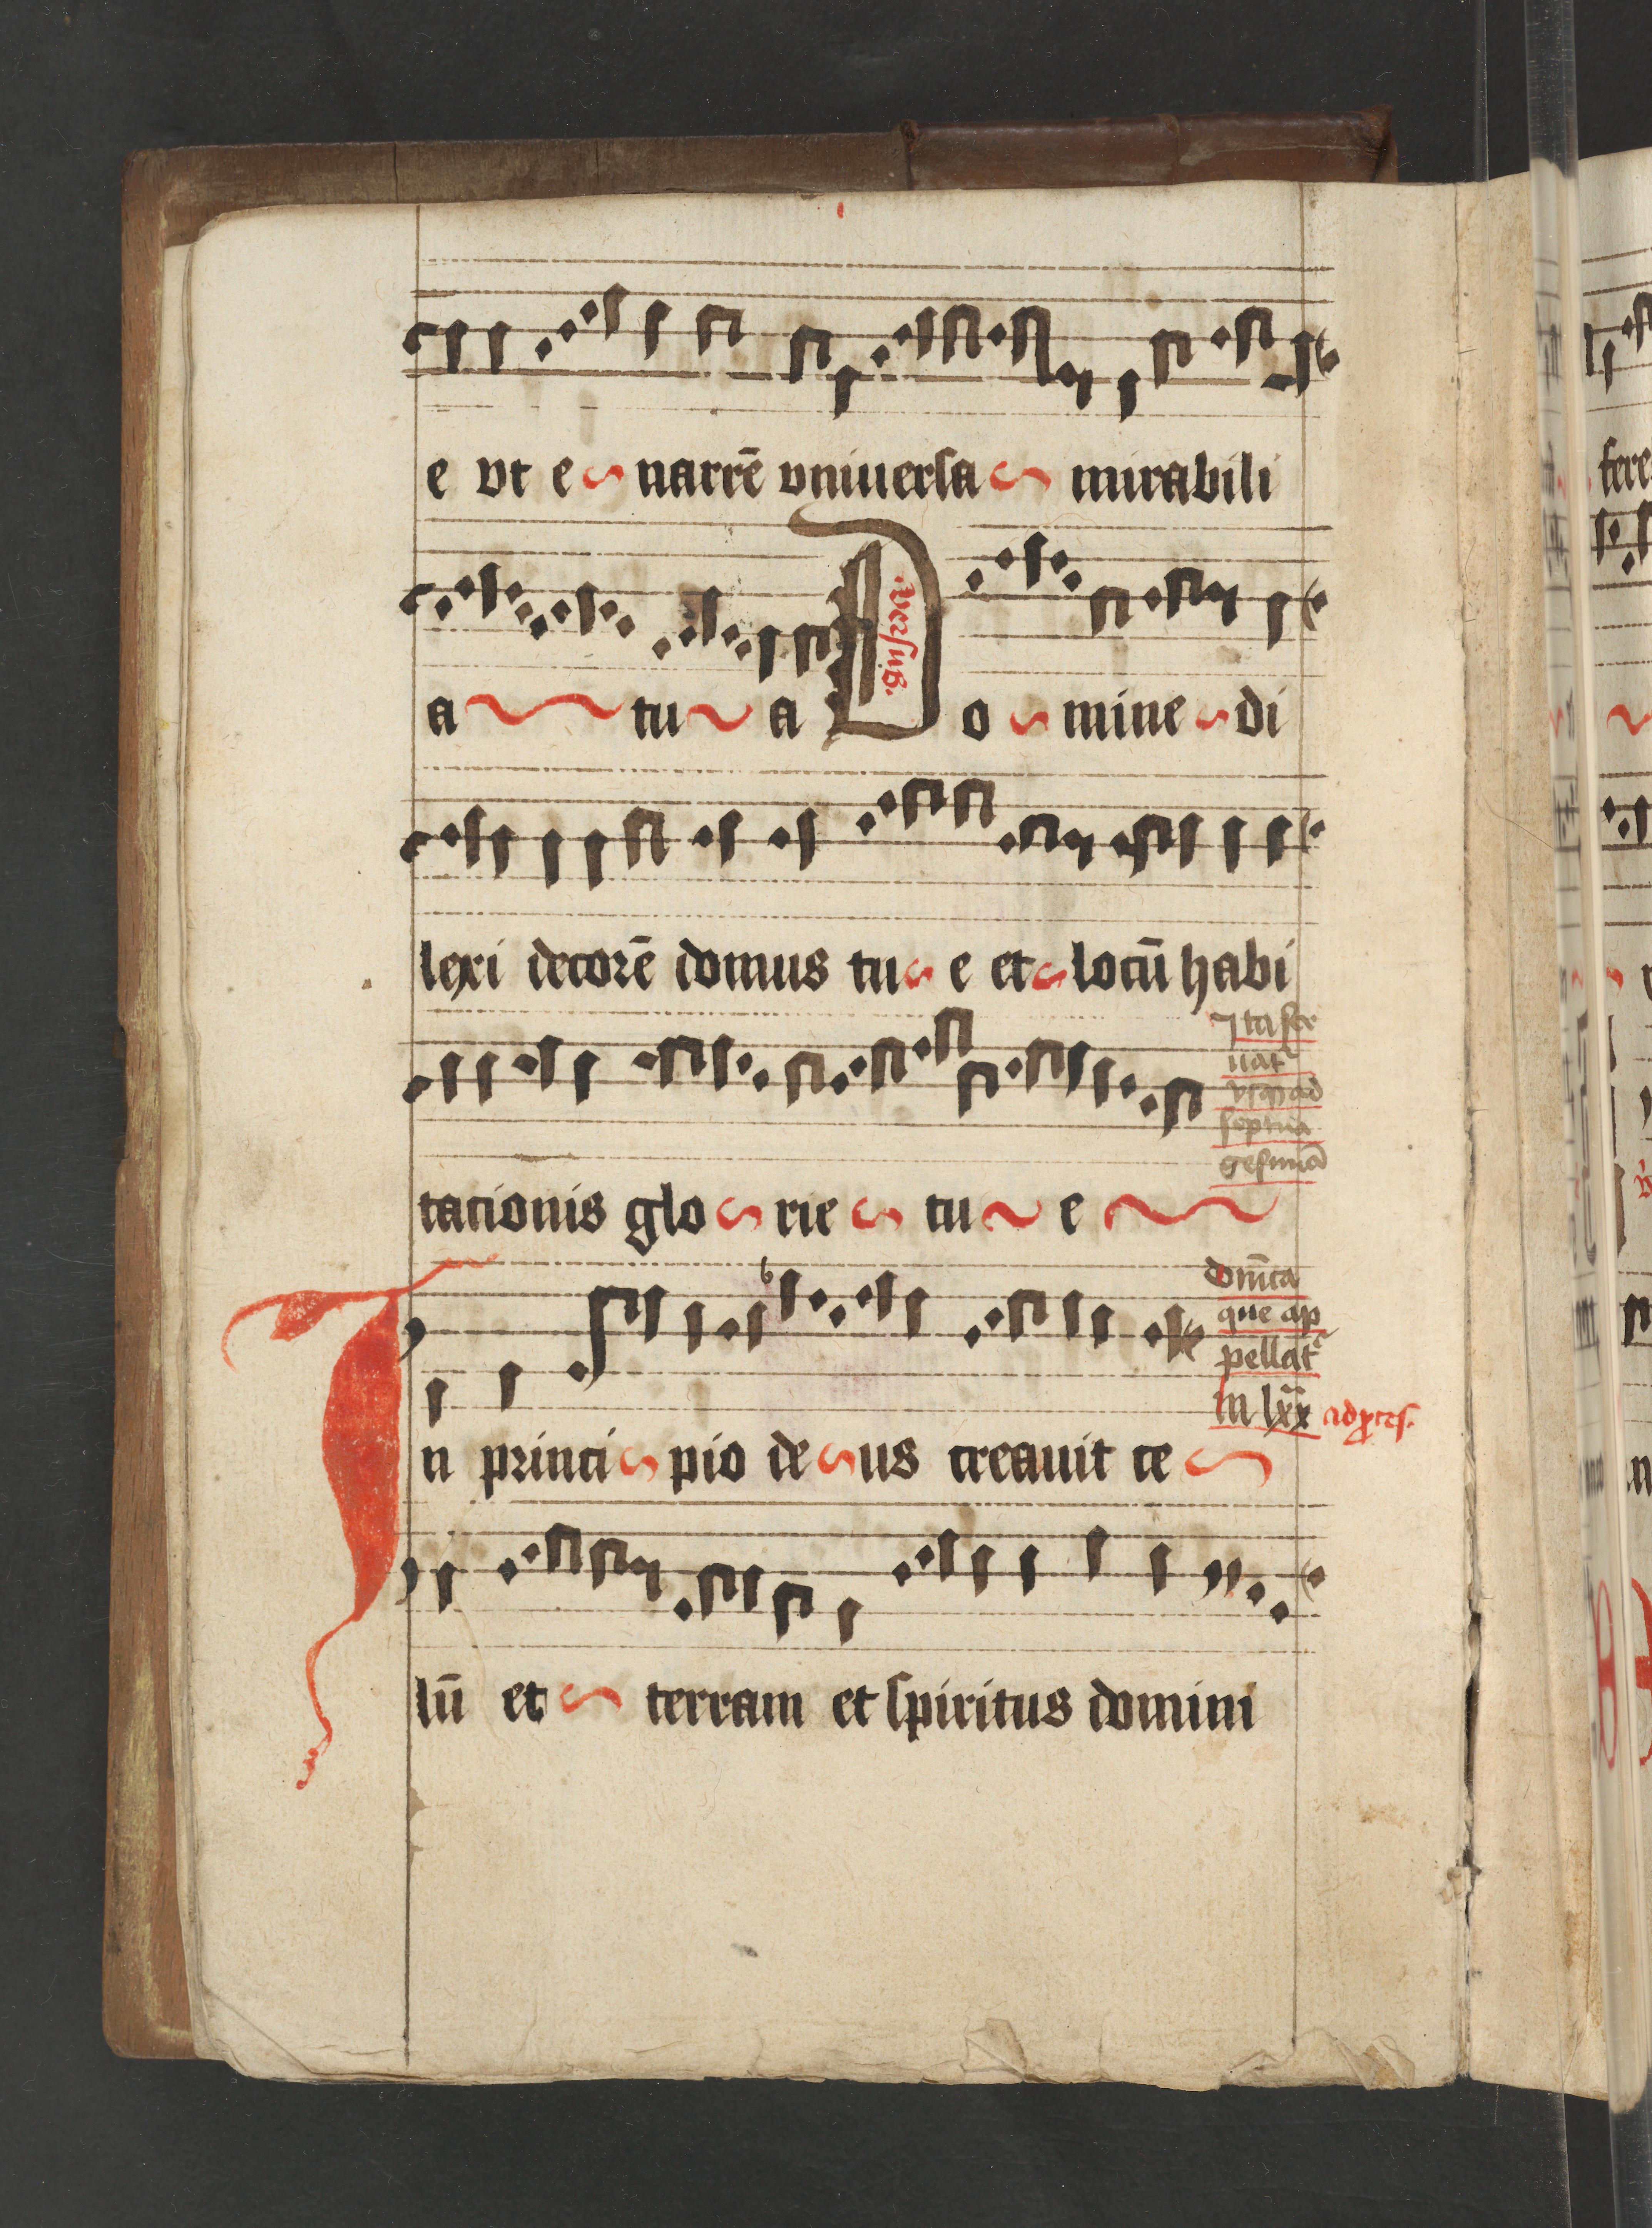 e vt e narrē vniuersa mirabili
versus.
a tu a Do mine di
lexi decorē domus tu e et locū habi
Ita ser
uat᷑
vsq₃ ad
septua
gesimā
tacionis glo rie tu e
domīca
que ap
pellat᷑
in lxx
In princi pio de us creauit ce
lū et terram et spiritus domini
fere